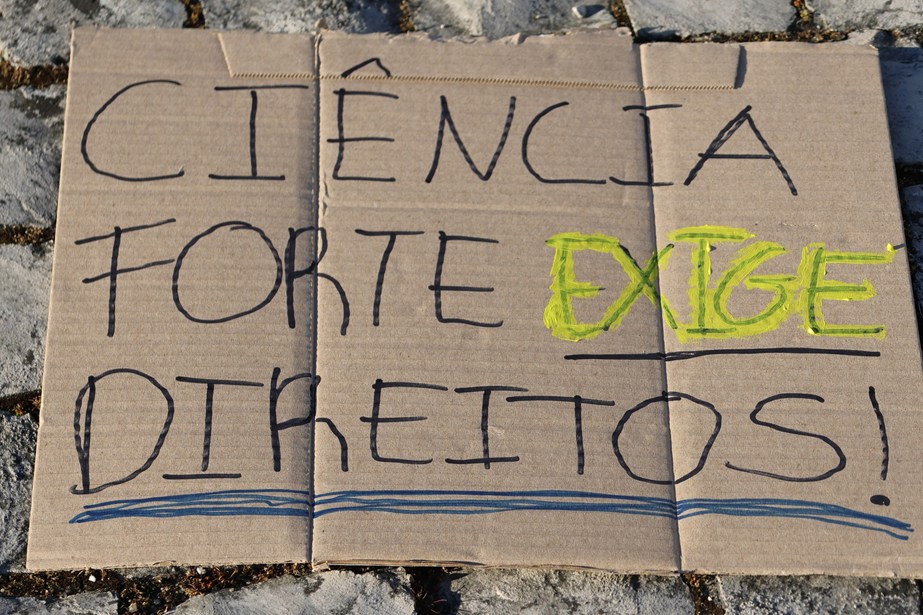 CIÊNCIA
FORTE EXIGE
DIREITOS!